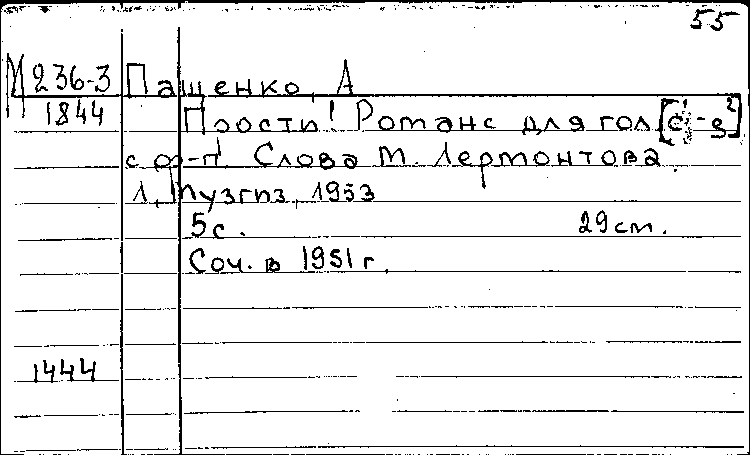 55
М 236-3 Пащенко, А
1844 Прости! Романс для гол [c¹-g²]
с ф-п. Слова М. Лермонтова.
Л., Музгиз, 1953
5 с. 29 см.
Соч. в 1951 г.
1444